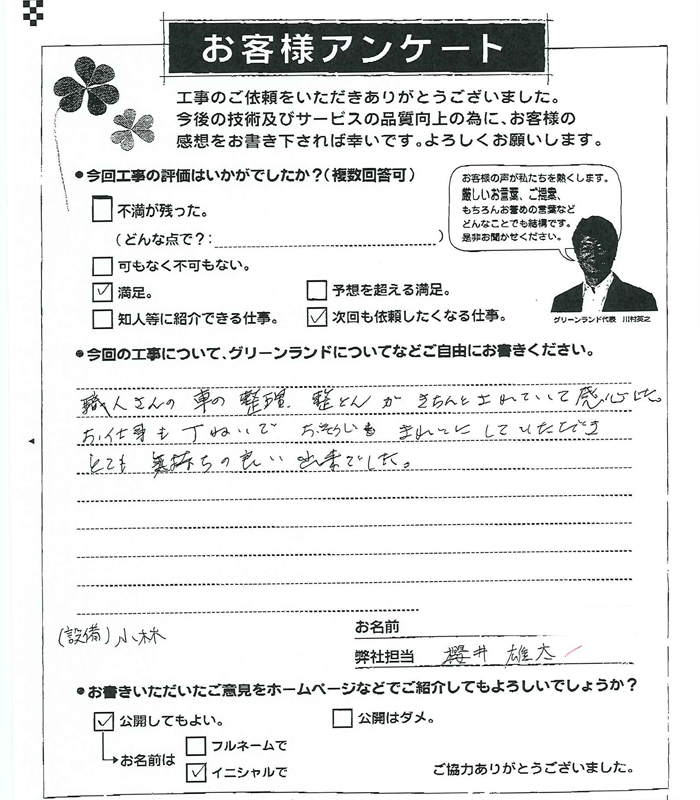 お客様アンケート
工事のご依頼をいただきありがとうございました。
今後の技術及びサービスの品質向上の為に、お客様の
感想をお書き下されば幸いです。よろしくお願いします。
●今回工事の評価はいかがでしたか？(複数回答可)
不満が残った。
(どんな点で？: )
可もなく不可もない。
満足。
予想を超える満足。
知人等に紹介できる仕事。
次回も依頼したくなる仕事。
お客様の声が私たちを熱くします。
厳しいお言葉、ご提案、
もちろんお誉めの言葉など
どんなことでも結構です。
是非お聞かせください。
グリーンランド代表 川村英之
●今回の工事について、グリーンランドについてなどご自由にお書きください。
職人さんの 車の 整理 整とん が きちんと されていて 感心した。
お仕事も 丁ねいで おそうじも きれいに して いただき
とても 気持ちの良い 出来でした。
(設備)小林
お名前
弊社担当 櫻井 雄太
●お書きいただいたご意見をホームページなどでご紹介してもよろしいでしょうか？
公開してもよい。
公開はダメ。
お名前は
フルネームで
イニシャルで
ご協力ありがとうございました。